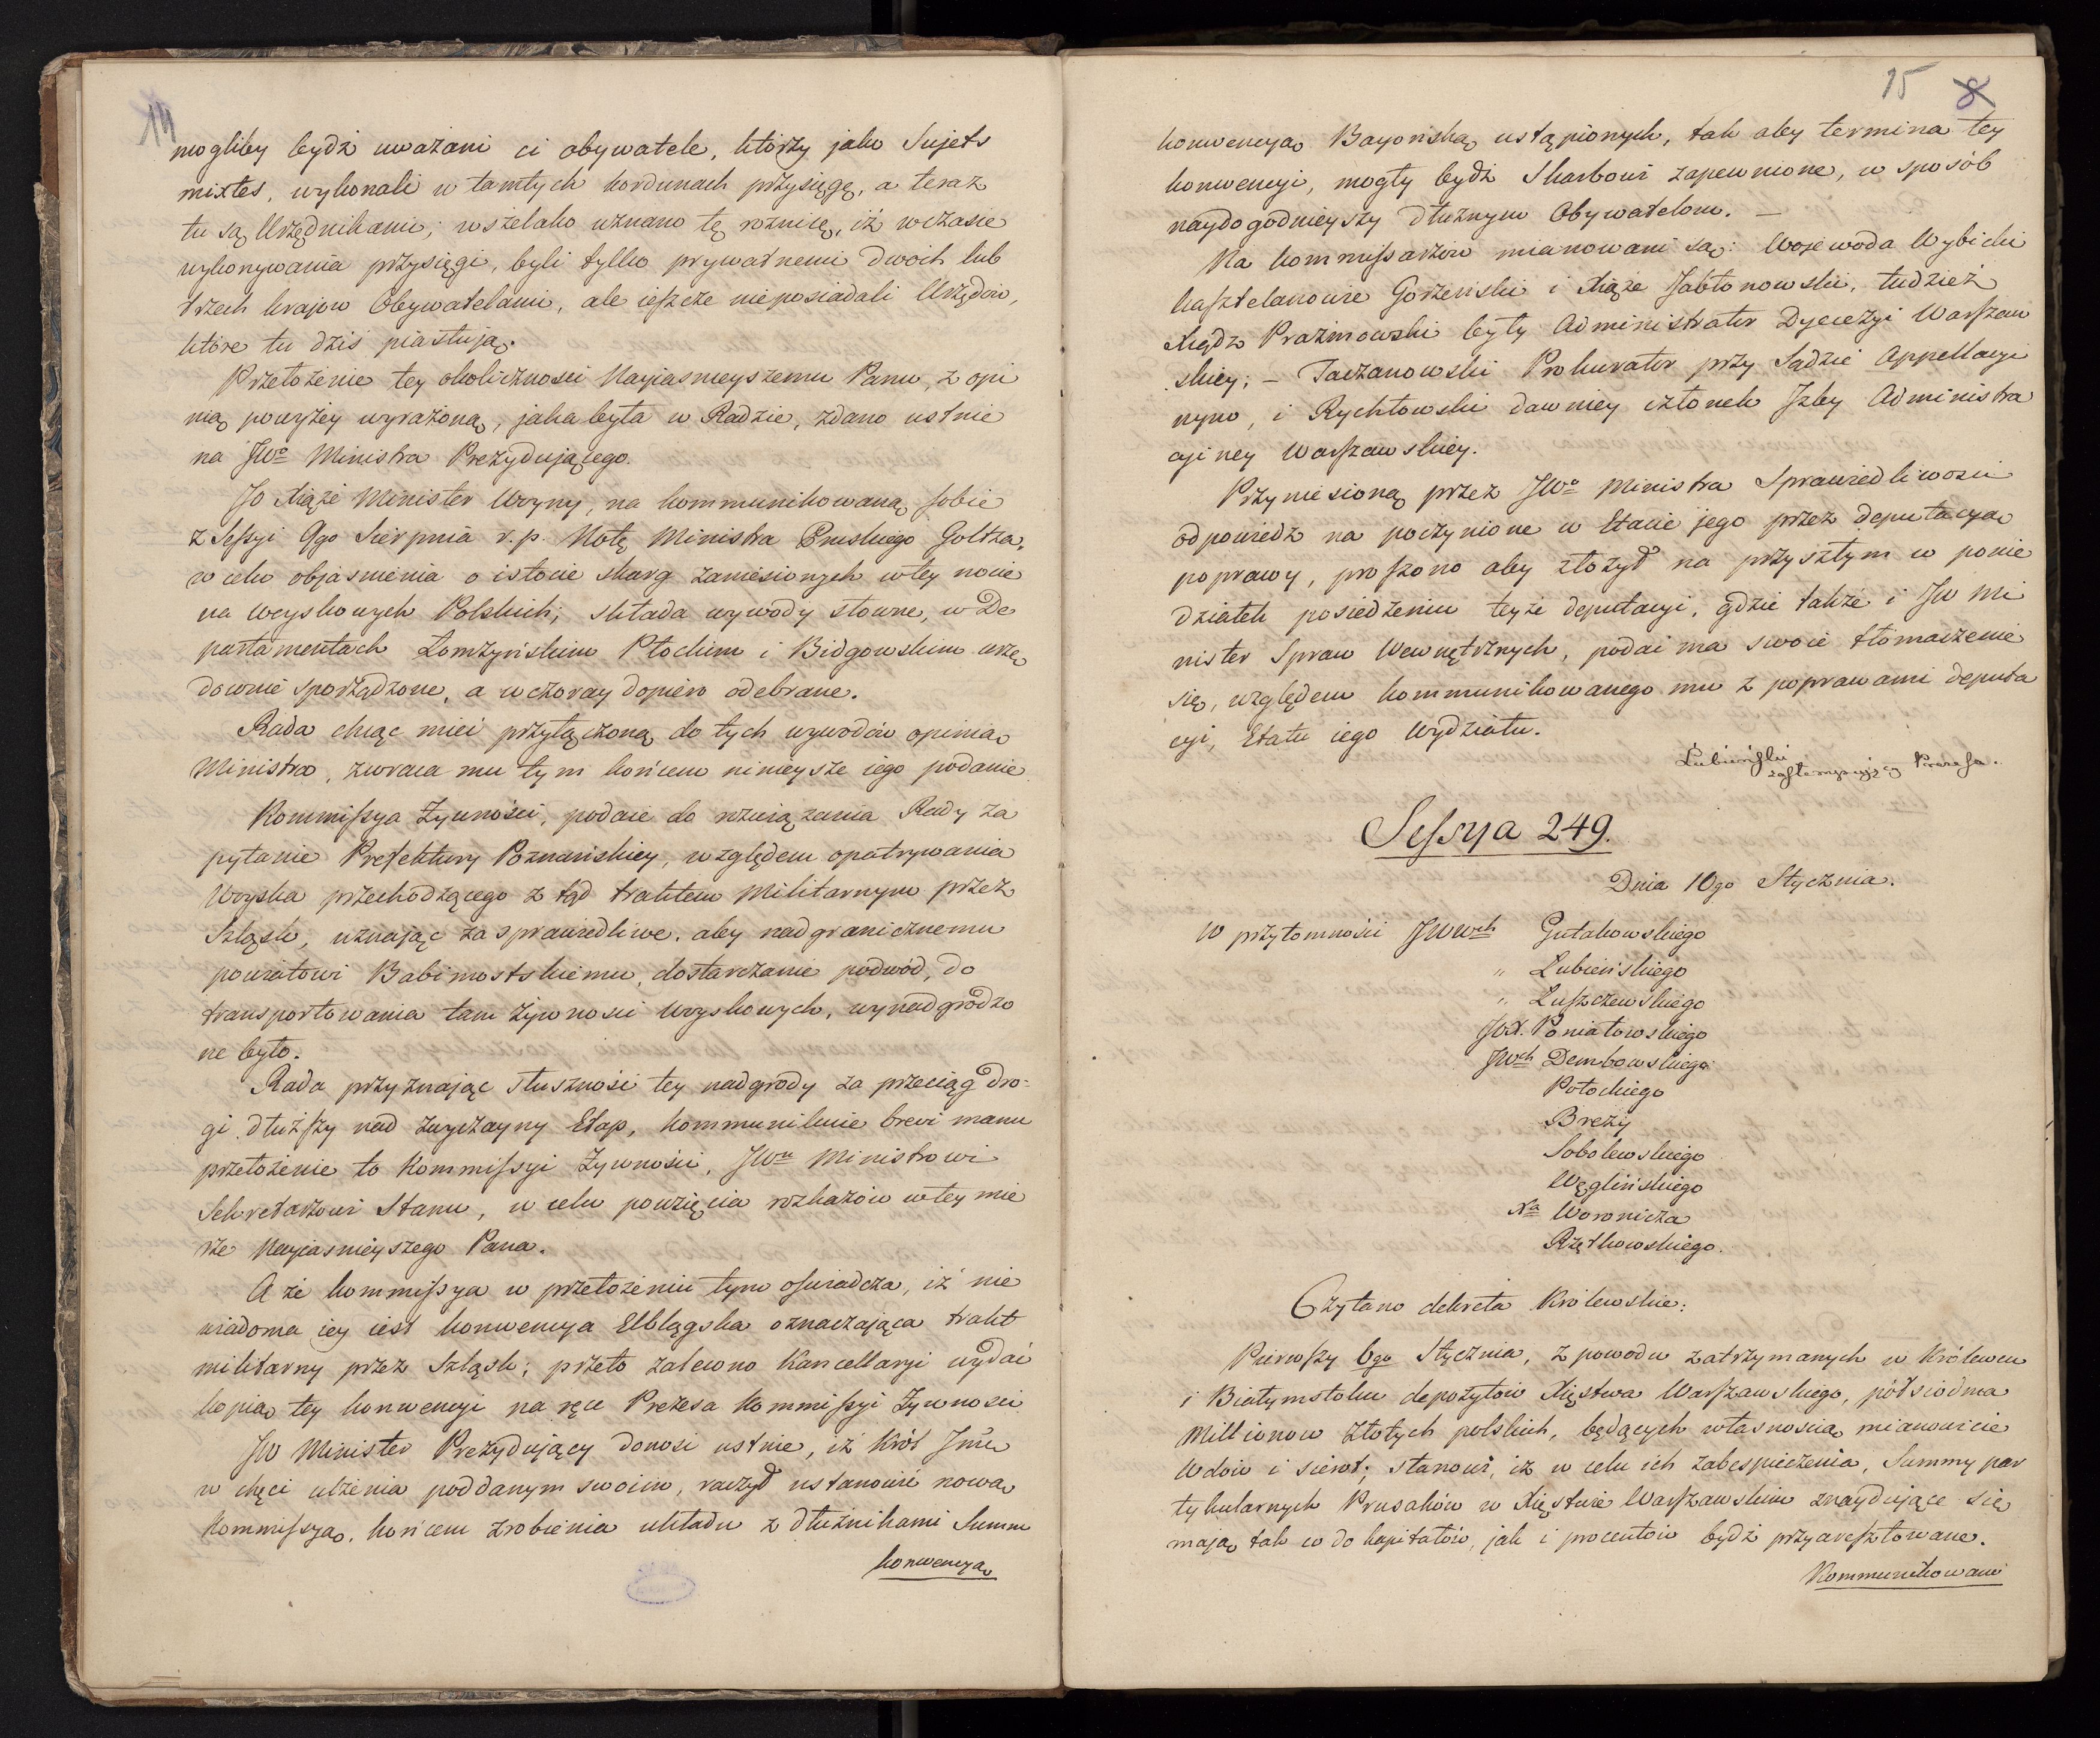 14
mogliby bydź uważani ci obywatele, którzy jako Sujets
mixtes, wykonali w tamtych kordunach przysięgę, a teraz
tu są Urzędnikami; wszelako uznano tę roznicę, iż wczasie
wykonywania przysięgi, byli tylko prywatnemi dwoch lub
trzech kraiow Obywatelami, ale ieszcze nieposiadali Urzędow,
które tu dziś piastują.
Przełożenie tey okoliczności Nayiasnieyszemu Panu, z opi
nią powyżey wyrażoną, jaka była w Radzie, zdano ustnie
na JWo Ministra Prezydującego.
JO Xiąże Minister Woyny, na kommunikowaną sobie
z Sessyi 9go Sierpnia r. p. Notę Ministra Pruskiego Goltza,
w celu objasnienia o istocie skarg zaniesionych wtey nocie
na woyskowych Polskich; składa wywody słowne, w De
partamentach Łomżyńskim Płockim i Bidgowskim urzę
downie sporządzone, a wczoray dopiero odebrane.
Rada chcąc mieć przyłączoną do tych wywodów opinią
Ministra, zwraca mu tym końcem ninieysze iego podanie
Kommissya Żywności, podaie do rozwiązania Rady za
pytanie Prefektury Poznańskiey, względem opatrywania
Woyska przechodzącego z tąd traktem militarnym przez
Szląsk, uznając za sprawiedliwe, aby nadgranicznemu
powiatowi Babimostskiemu, dostarczanie podwód, do
transportowania tam żywnosci woyskowych, wynadgrodzo
ne było.
Rada przyznając słuszność tey nadgrody za przeciąg dro-
gi dłuższy nad zwyczayny Etap, kommunikuie brevi manu
przełożenie to Kommissyi Żywności, JWu Ministrowi
Sekretarzowi Stanu, w celu powzięcia rozkazów wtey mie
rze Nayiasnieyszego Pana.
A że kommissya w przełożeniu tym oświadcza, iż nie
wiadoma iey iest konwencya Elblągska oznaczająca trakt
militarny przez Szląsk; przeto zalecono Kancellaryi wydać
kopią tey konwencyi na ręce Prezesa Kommissyi Żywnosci
JW Minister Prezydujący donosi ustnie, iż Król Jmć
w chęci ulżenia poddanym swoim, raczył ustanowić nową
Kommissyą, końcem zrobienia układu z dłużnikami Summ
konwencyą
15 8
konwencyą Bayońską ustąpionych, tak aby termina tey
konwencyi, mogły bydź Skarbowi zapewnione, w sposób
naydogodnieyszy dłużnym Obywatelom. —
Na kommissarzów mianowani są: Wojewoda Wybicki
kasztelanowie Gorzeński i Xiąże Jabłonowski, tudzież
Xiądz Prażmowski były Administrator Dyecezyi Warszaw
skiey; – Taczanowski Prokurator przy Sądzie Appellacyi
nym, i Rychłowski dawniey członek Izby Administra
cyiney Warszawskiey.
Przyniesioną przez JWo Ministra Sprawiedliwości
odpowiedź na poczynione w Etacie jego przez deputacyą
poprawy, proszono aby złożył na przyszłym w ponie
działek posiedzeniu teyże deputacyi, gdzie także i JW Mi
nister Spraw Wewnętrznych, podać ma swoie tłomaczenie
się, względem kommunikowanego mu z poprawami deputa
cyi, Etatu iego Wydziału.
Łubieński
zastempuiący Prezesa.
Sessya 249.
Dnia 10go Stycznia.
W przytomności JWWch Gutakowskiego
" Łubieńskiego
" Łuszczewskiego
JOX. Poniatowskiego
JWch Dembowskiego
Potockiego
Brezy
Sobolewskiego
Węglińskiego
Xa Woronicza
Rzętkowskiego.
Czytano dekreta Królewskie:
Pierwszy 6go Stycznia, z powodu zatrzymanych w Królewcu
i Białymstoku depozytów Xięstwa Warszawskiego, półsiodma
Millionow Złotych polskich, będących własnością mianowicie
Wdów i sierot; stanowi, iż w celu ich zabespieczenia, Summy par
tykularnych Prusaków w Xięstwie Warszawskim znayduiące się
mają tak co do kapitałów, jak i procentów bydź przyaresztowane.
Kommunikowane